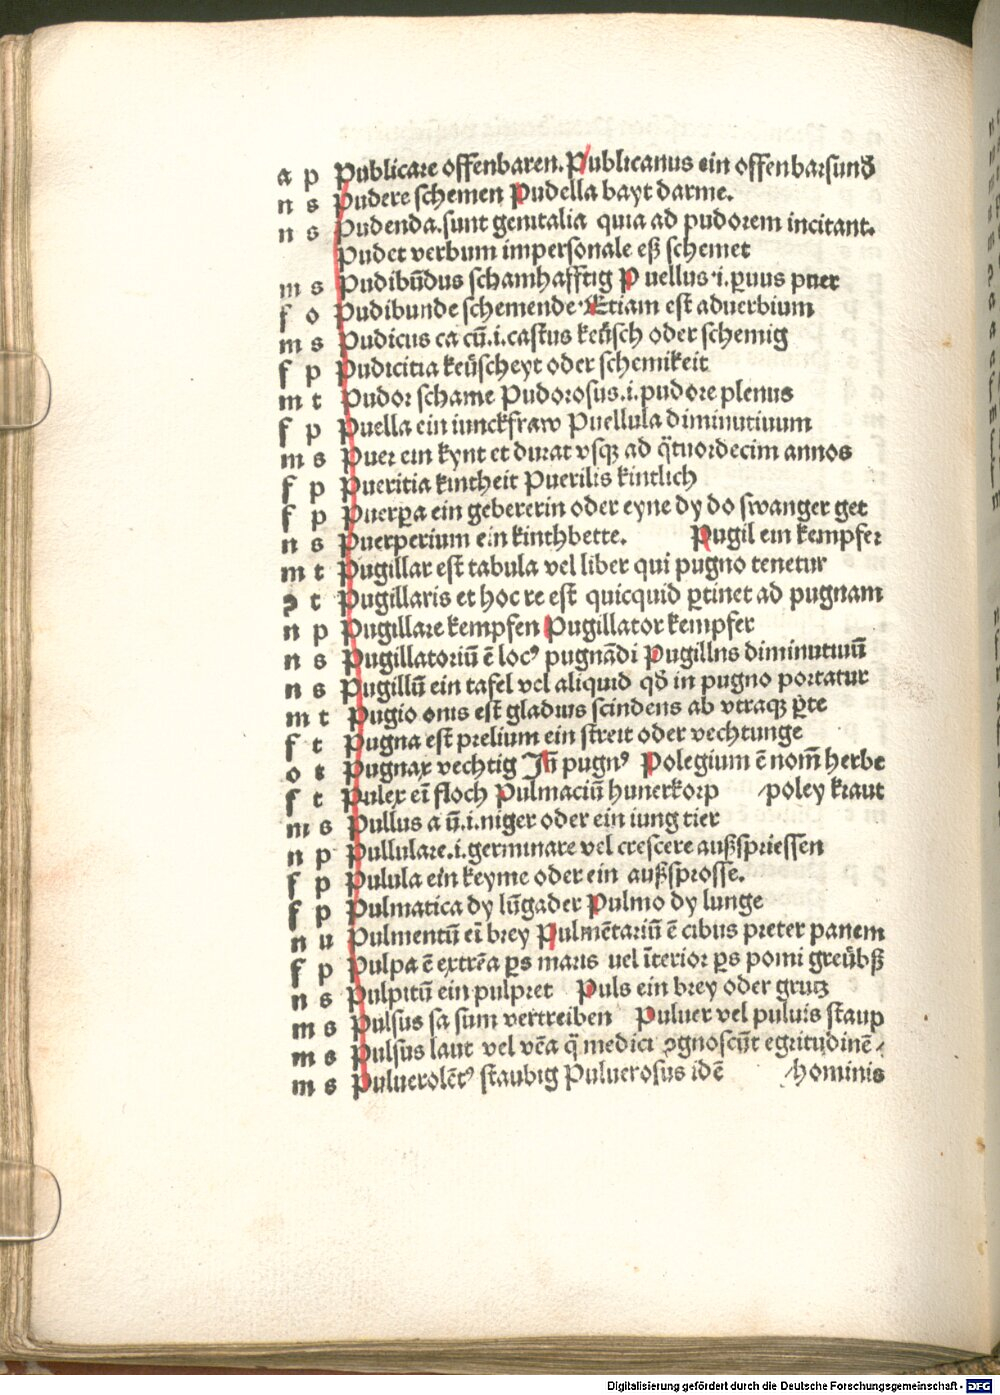 a p Publicare offenbaren. Publicanus ein offenbarsund̄
n s Pudere schemen Pudella bayt darme.
n s Pudenda.sunt genitalia quia ad pudorem incitant.
Pudet verbum impersonale eß schemet
m s Pudibūdus schamhafftig Puellus.i.ꝑuus puer
f o Pudibunde schemende. Etiam est aduerbium
m s Pudicus ca cū.i.castus keüsch oder schemig
f p Pudicitia keüscheyt oder schemikeit
m t Pudor schame Pudorosus.i.pudore plenus
f p Puella ein iunckfraw Puellula diminutiuum
m s Puer ein kynt et durat vsqꝫ ad q̄tuordecim annos
f p Pueritia kintheit Puerilis kintlich
f p Puerꝑa ein gebererin oder eyne dy do swanger get
n s Puerperium ein kinthbette. Pugil ein kempfer
m t Pugillar est tabula vel liber qui pugno tenetur
ꝯ t Pugillaris et hoc re est quicquid ꝑtinet ad pugnam
n p Pugillare kempfen Pugillator kempfer
n s Pugillatoriū ē locꝰ pugnādi Pugillus diminutiuū
n s Pugillū ein tafel vel aliquid qd̄ in pugno portatur
m t Pugio onis est gladius scindens ab vtraqꝫ ꝑte
f t Pugna est prelium ein streit oder vechtunge
o t Pugnax vechtig Jn̄ pugnꝰ Polegium ē nom̄ herbe
f t Pulex eī floch Pulmaciū hunerkorp poley kraut
m s Pullus a ū.i.niger oder ein iung tier
n p Pullulare.i.germinare vel crescere außspriessen
f p Pulula ein keyme oder ein außsprosse.
f p Pulmatica dy lūgader Pulmo dy lunge
n u Pulmentū eī brey Pulmētariū ē cibus preter panem
f p Pulpa ē extrēa ꝑs maris vel īterior ꝑs pomi greübß
n s Pulpitū ein pulpret Puls ein brey oder grutz
m s Pulsus sa sum vertreiben Puluer vel puluis staup
m s Pulsus laut vel vēa q̄ medici ꝯgnoscūt egritudinē
m s Puluerolētꝰ staubig Puluerosus idē hominis
Digitalisierung gefördert durch die Deutsche Forschungsgemeinschaft - DFG